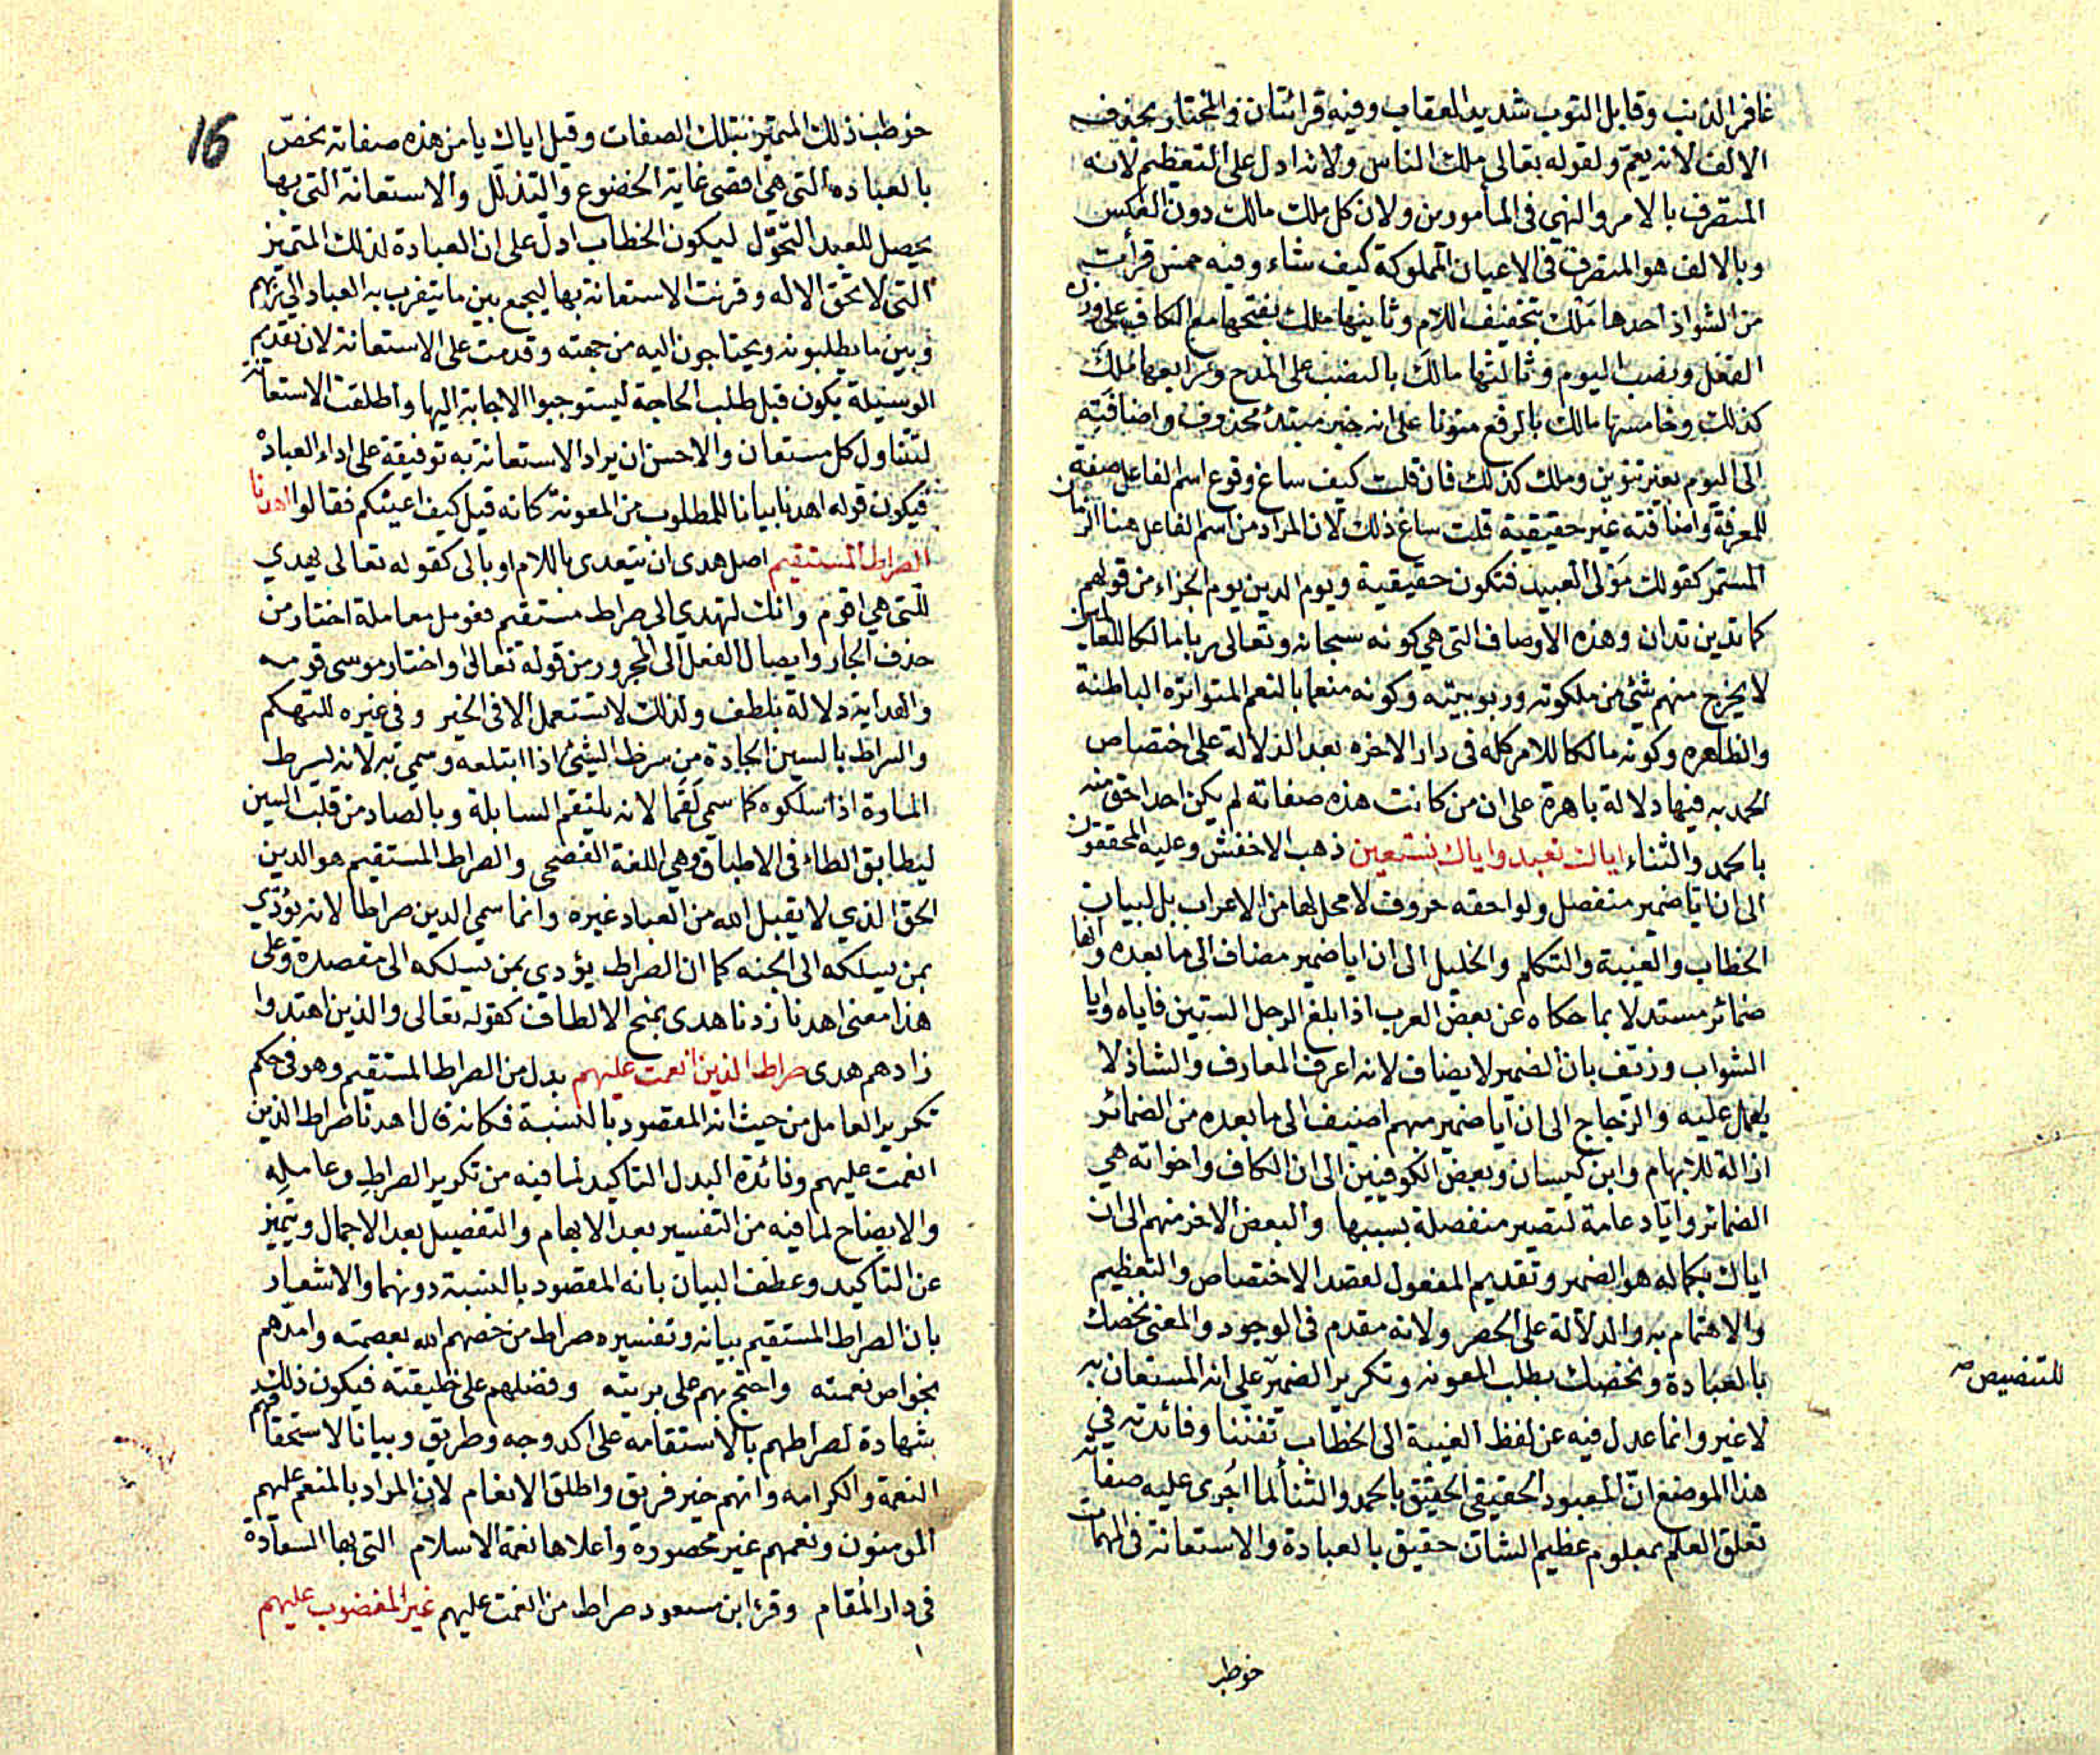 غافر الذنب وقابل التوب شديد العقاب وفيه قرائتان والمختار بحذف
الالف لانه يعم ولقوله تعالى ملك الناس ولانه ادل على التعظيم لانه
المتصرف بالامر والنهى فى المأمورين ولان كل ملك مالك دون العكس
وبالالف هو المتصرف فى الاعيان المملوكة كيف شاء وفيه خمس قرأت
من الشواذ احدها ملك بتخفيف اللام وثانيها ملك بفتحها مع الكاف على وزن
الفعل ونصب اليوم وثالثها مالك بالنصب على المدح ورابعها ملك
كذلك وخامسها مالك بالرفع منونا على انه خبر مبتدء محذوف واضافته
الى اليوم بغير تنوين وملك كذلك فان قلت كيف ساغ وقوع اسم الفاعل صفة
للمعرفة واضافته غير حقيقية قلت ساغ ذلك لان المراد من اسم الفاعل هنا الزمان
المستمر كقولك مولى العبيد فتكون حقيقية ويوم الدين يوم الجزاء من قولهم
كما تدين تدان وهذه الاوصاف التى هى كونه سبحانه وتعالى ربا مالكا للعالمين
لا يخرج منهم شئ من ملكوته وربوبيته وكونه منعما بالنعم المتواترة الباطنة
والظاهره وكونه مالكا للامر كله فى دار الاخره بعد الدلالة على اختصاص
الحمد به فيها دلالة باهرة على ان من كانت هذه صفاته لم يكن احد احق منه
بالحمد والثناء اياك نعبد واياك نستعين ذهب الاخفش وعليه المحققون
الى ان ايا ضمير منفصل ولواحقه حروف لا محل لها من الاعراب بل لبيان
الخطاب والغيبة والتكلم والخليل الى ان ايا ضمير مضاف الى ما بعده وانها
ضمائر مستدلا بما حكاه عن بعض العرب اذا بلغ الرجل الستين فاياه وايا
الشواب وزيف بان الضمير لا يضاف لانه اعرف المعارف والشاذ لا
يعمل عليه والزجاج الى ان ايا ضمير مبهم اضيف الى ما بعده من الضمائر
ازالة للابهام وابن كيسان وبعض الكوفيين الى ان الكاف واخواته هى
الضمائر وايا دعامة لتصير منفصلة بسببها والبعض الاخر منهم الى ان
اياك بكماله هو الضمير وتقديم المفعول لقصد الاختصاص والتعظيم
والاهتمام به والدلالة على الحصر ولانه مقدم فى الوجود والمعنى نخصك
بالعبادة ونخصك بطلب المعونه وتكرير الضمير على انه المستعان به
للتنصيص صه
لا غير وانما عدل فيه عن لفظ الغيبة الى الخطاب تفننا وفائدته فى
هذا الموضع ان المعبود الحقيقى الحقيق بالحمد والثنأ لما اجرى عليه صفاته
تعلق العلم بمعلوم عظيم الشان حقيق بالعبادة والاستعانة فى المهمات
خوطب
16
خوطب ذلك المتميز بتلك الصفات وقيل اياك يا من هذه صفاته نخص
بالعباده التى هى اقصى غاية الخضوع والتذلل والاستعانة التى بها
يحصل للعبد التحول ليكون الخطاب ادل على ان العبادة لذلك المتميز
التى لا تحق الا له وقرنت الاستعانة بها ليجمع بين ما يتقرب به العباد الى ربهم
وبين ما يطلبونه ويحتاجون اليه من جهته وقدمت على الاستعانة لان تقديم
الوسيلة يكون قبل طلب الحاجة ليستوجبوا الاجابة اليها واطلقت الاستعانة
لتتناول كل مستعان والاحسن ان يراد الاستعانة به توفيقة على اداء العبادة
فيكون قوله اهدنا بيانا للمطلوب من المعونة كانه قيل كيف اعينكم فقالوا اهدنا
الصراط المستقيم اصل هدى ان يتعدى باللام او بالى كقوله تعالى يهدي
للتى هى اقوم وانك لتهدي الى صراط مستقيم فعومل معاملة اختار من
حذف الجار وايصال الفعل الى المجرور من قوله تعالى واختار موسى قومه
والهداية دلالة بلطف ولذلك لا تستعمل الا فى الخير وفى غيره للتهكم
والسراط بالسين الجادة من سرط الشئ اذا ابتلعه وسمي به لانه يسرط
المارة اذا سلكوه كما سمي لقما لانه يلتقم السابلة وبالصاد من قلب السين
ليطابق الطاء فى الاطباق وهى اللغة الفصحى والصراط المستقيم هو الدين
الحق الذي لا يقبل الله من العباد غيره وانما سمي الدين صراطا لانه يؤدي
بمن يسلكه الى الجنه كما ان الصراط يؤدي بمن يسلكه الى مقصده وعلى
هذا معنى اهدنا زدنا هدى بمنح الالطاف كقوله تعالى والذين اهتدوا
زادهم هدى صراط الذين انعمت عليهم بدل من الصراط المستقيم وهو فى حكم
تكرير العامل من حيث انه المقصود بالنسبة فكانه قال اهدنا صراط الذين
انعمت عليهم وفائدة البدل التاكيد لما فيه من تكرير الصراط وعامله
والايضاح لما فيه من التفسير بعد الابهام والتفصيل بعد الاجمال ويتميز
عن التاكيد وعطف البيان بانه المقصود بالنسبة دونهما والاشعار
بان الصراط المستقيم بيانه وتفسيره صراط من خصهم الله بعصمته وامدهم
بخواص نعمته واحتج بهم على بريته وفضلهم على خليقته فيكون ذلك
بشهادة لصراطهم بالاستقامه على اكد وجه وطريق وبيانا لاستحقاقهم
النعمة والكرامه وانهم خير فريق واطلق الانعام لان المراد بالمنعم عليهم
المومنون ونعمهم غير محصورة واعلاها نعمة الاسلام التى بها السعادة
فى دار المقام وقرء ابن مسعود صراط من انعمت عليهم غير المغضوب عليهم